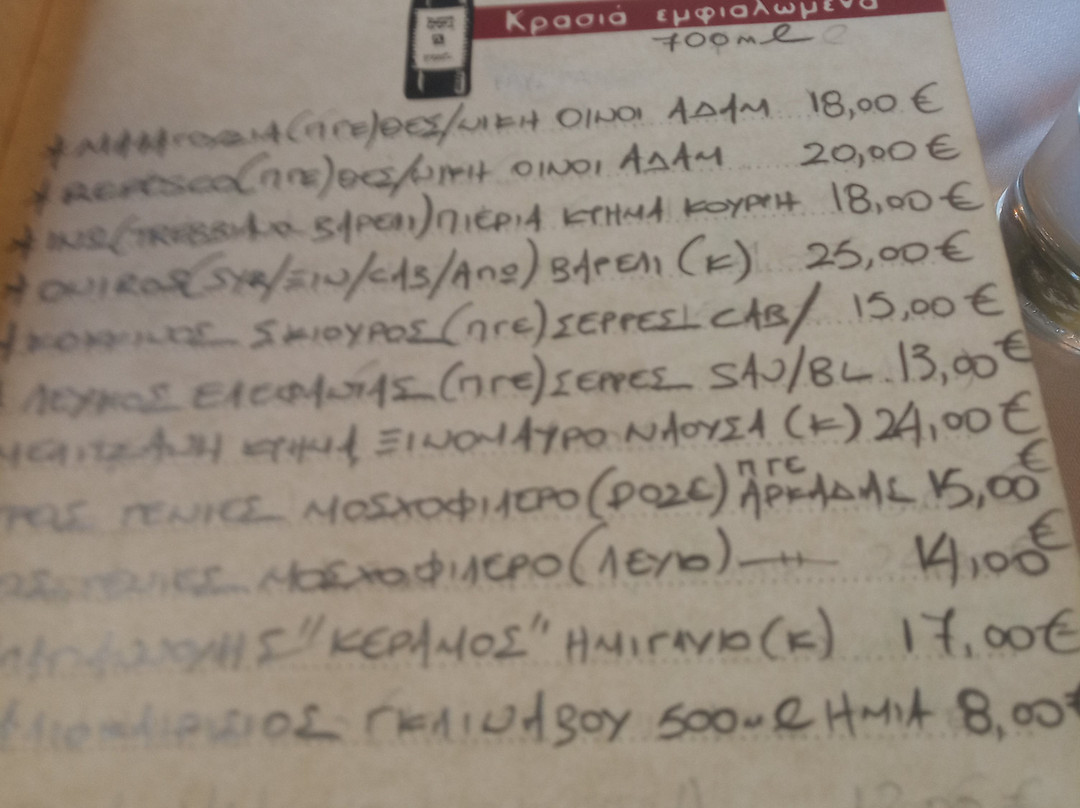 Κρασιά εμφιαλωμένα
700ml
ΜΑΛΑΓΟΥΖΙΑ (ΠΓΕ) ΘΕΣ/ΝΙΚΗ ΟΙΝΟΙ ΑΔΑΜ 18,00 €
REFOSCO (ΠΓΕ) ΘΕΣ/ΝΙΚΗ ΟΙΝΟΙ ΑΔΑΜ 20,00 €
(TREBBIANO ΒΑΡΕΛΙ) ΠΙΕΡΙΑ ΚΤΗΜΑ ΚΟΥΡΤΗ 18,00 €
(SYR/ΞΙΝ/CAB/ΑΠΩ) ΒΑΡΕΛΙ (Κ) 25,00 €
ΚΟΚΚΙΝΟΣ ΣΚΙΟΥΡΟΣ (ΠΓΕ) ΣΕΡΡΕΣ CAB/ 15,00 €
ΛΕΥΚΟΣ ΕΛΕΦΑΝΤΑΣ (ΠΓΕ) ΣΕΡΡΕΣ SAU/BL 13,00 €
ΜΕΛΙΤΖΑΝΗ ΚΤΗΜΑ ΞΙΝΟΜΑΥΡΟ ΝΑΟΥΣΑ (Κ) 24,00 €
ΜΟΣΧΟΦΙΛΕΡΟ (ΡΟΖΕ) ΠΓΕ ΑΡΚΑΔΙΑΣ 15,00 €
ΜΟΣΧΟΦΙΛΕΡΟ (ΛΕΥΚΟ) —〃— 14,00 €
"ΚΕΡΑΜΟΣ" ΗΜΙΓΛΥΚΟ (Κ) 17,00 €
500ml ΗΜΙΑ 8,00 €